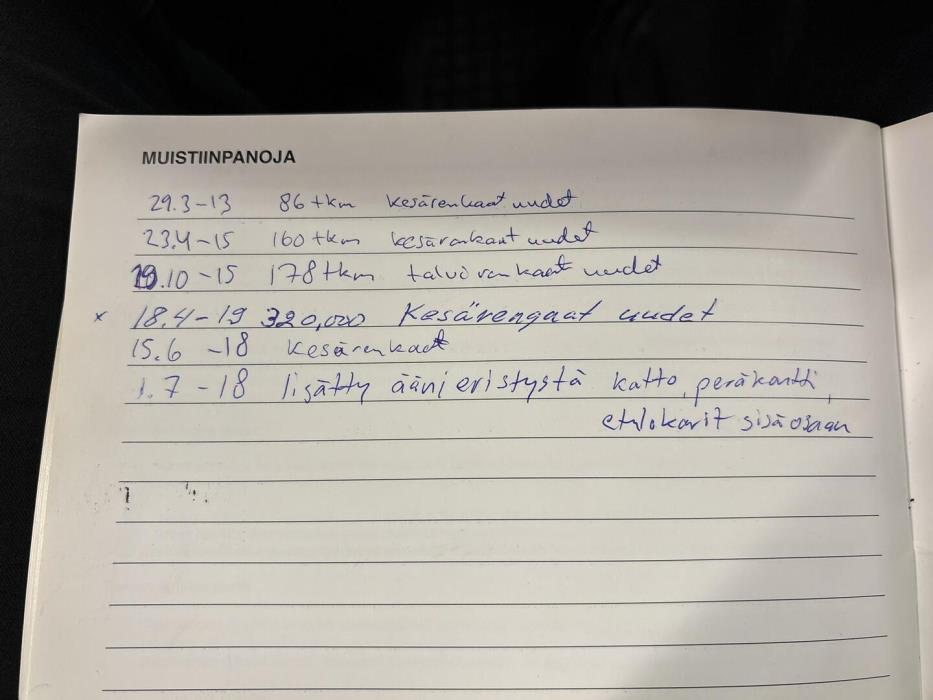 MUISTIINPANOJA
29.3-13 86 tkm kesärenkaat uudet
23.4-15 160 tkm kesärenkaat uudet
19.10-15 178 tkm talvirenkaat uudet
x 18.4-19 320,000 Kesärengaat uudet
15.6 -18 kesärenkaat
1.7 -18 lisätty äänieristystä katto, peräkontti,
etulokarit sisäosaan